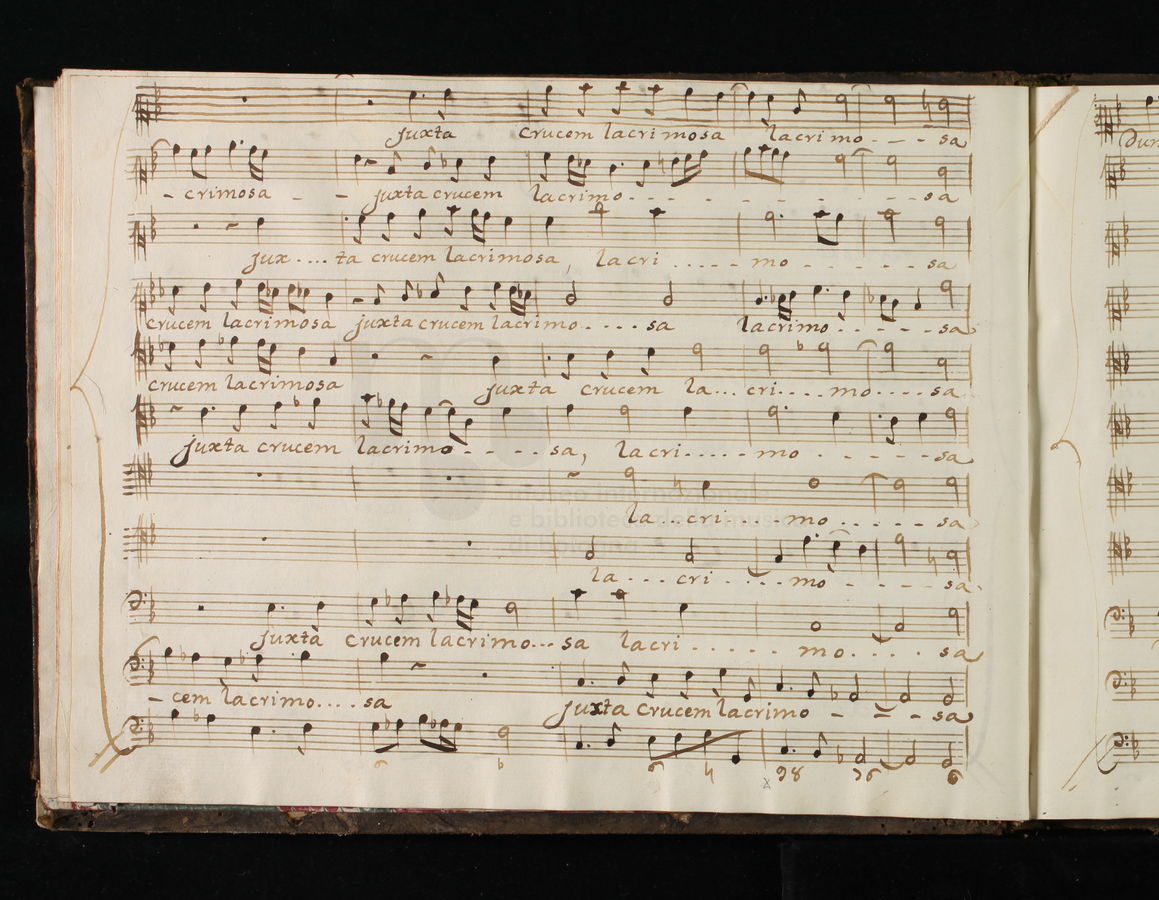 juxta crucem lacrimosa lacrimo - - - sa
- crimosa - - juxta crucem lacrimo - - - - - - - - - - sa
jux .... ta crucem lacrimosa, lacri ..... mo - - - - - sa
crucem lacrimosa juxta crucem lacrimo .... sa lacrimo . - - - - sa
crucem lacrimosa juxta crucem la... cri.... mo.... sa
juxta crucem lacrimo - - - - sa, lacri..... mo - - - - - sa
la... cri.... mo ..... sa
la ... cri ..... mo - - - - sa
juxta crucem lacrimo... sa lacri ..... mo.... sa
- cem lacrimo.... sa juxta crucem lacrimo - - - sa
Dum